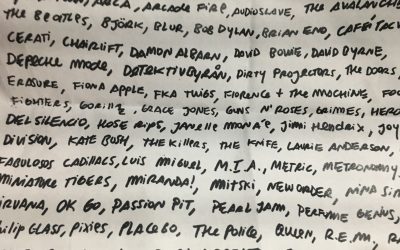 ARCA, ARCADE FIRE, AUDIOSLAVE, THE AVALANCHE
THE BEATLES, BJÖRK, BLUR, BOB DYLAN, BRIAN ENO,
CERATI, CHAIRLIFT, DAMON ALBARN, DAVID BOWIE, DAVID BYRNE,
DEPECHE MODE, DETEKTIVBYRÅN, DIRTY PROJECTORS, THE DOORS,
ERASURE, FIONA APPLE, FKA TWIGS, FLORENCE + THE MACHINE, FOO
FIGHTERS, GORILLAZ, GRACE JONES, GUNS N' ROSES, GRIMES, HERO
DEL SILENCIO, JANELLE MONÁE, JIMI HENDRIX, JOY
DIVISION, KATE BUSH, THE KILLERS, THE KNIFE, LAURIE ANDERSON,
FABULOSOS CADILLACS, LUIS MIGUEL, M.I.A., METRIC, METRONOMY,
MINIATURE TIGERS, MIRANDA!, MITSKI, NEW ORDER, NINA SIM
NIRVANA, OK GO, PASSION PIT, PEARL JAM, PERFUME GENIUS,
PHILIP GLASS, PIXIES, PLACEBO, THE POLICE, QUEEN, R.E.M,